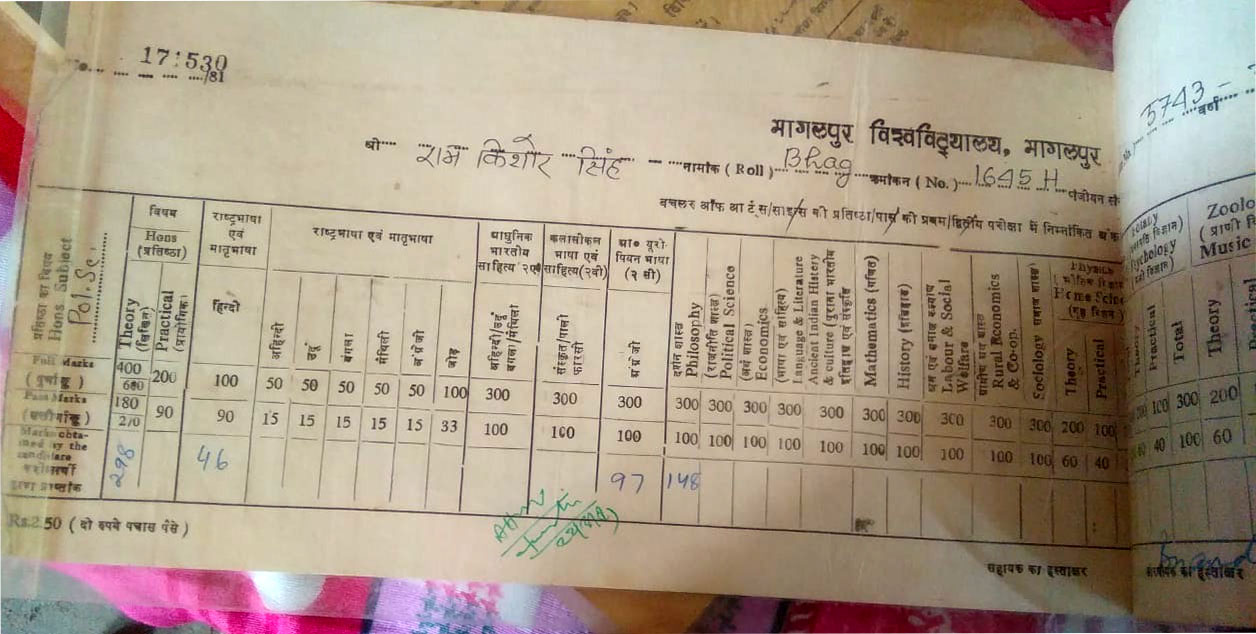 17:530
/81
भागलपुर विश्वविद्यालय, भागलपुर
श्री राम किशोर सिंह नामांक ( Roll ) Bhag क्रमांकन ( No. ) 1645 H पंजीयन सं
5743 -
वचलर ऑफ आर्ट्स/साइन्स की प्रतिष्ठा/पास की प्रथम/द्वितीय परीक्षा में निम्नांकित अंक
प्रतिष्ठा का विषय
Hons Subject
Pol. Sc.
विषय
Hons
(प्रतिष्ठा)
Theory
(लिखित)
Practical
(प्रायोगिक)
राष्ट्रभाषा
एवं
मातृभाषा
हिन्दी
राष्ट्रभाषा एवं मातृभाषा
अहिन्दी
उर्दू
बंगला
मैथिली
अंग्रेजी
जोड़
आधुनिक
भारतीय
साहित्य २ए
अहिन्दी/उर्दू
बंगला/मैथिली
कलासीकल
भाषा एवं
साहित्य(२बी)
संस्कृत/पाली
फारसी
आ० यूरो-
पियन भाषा
(२ सी)
अंग्रेजी
दर्शन शास्त्र
Philosophy
(राजनीति शास्त्र)
Political Science
(अर्थ शास्त्र)
Economics
(भाषा एवं साहित्य)
Language & Literature
Ancient Indian History
& culture (पुराना भारतीय
इतिहास एवं संस्कृति
Mathematics (गणित)
History (इतिहास)
श्रम एवं समाज कल्याण
Labour & Social
Welfare
ग्रामीण अर्थ शास्त्र
Rural Economics
& Co-op.
Sociology समाज शास्त्र
Physics
( भौतिक विज्ञान
Home Scien
(गृह विज्ञान )
Theory
Practical
Botany
Psychology
Theory
Practical
Total
Zoolo
( प्राणी वि
Music
Theory
Full Marks
(पूर्णाङ्क)
400
600
200
100
50 50 50 50 50 100
300 300 300
300 300 300 300 300 300 300 300 300 300 200 100 200 100 300 200
Pass Marks
(उत्तीर्णाङ्क)
180
270
90
90
15 15 15 15 15 33
100 100 100
100 100 100 100 100 100 100 100 100 100 60 40 60 40 100 60
Marks obta-
ined by the
candidate
परीक्षार्थी
द्वारा प्राप्तांक
298 46 97 148
Rs.2.50 ( दो रुपये पचास पैसे )
सहायक का हस्ताक्षर
का हस्ताक्षर